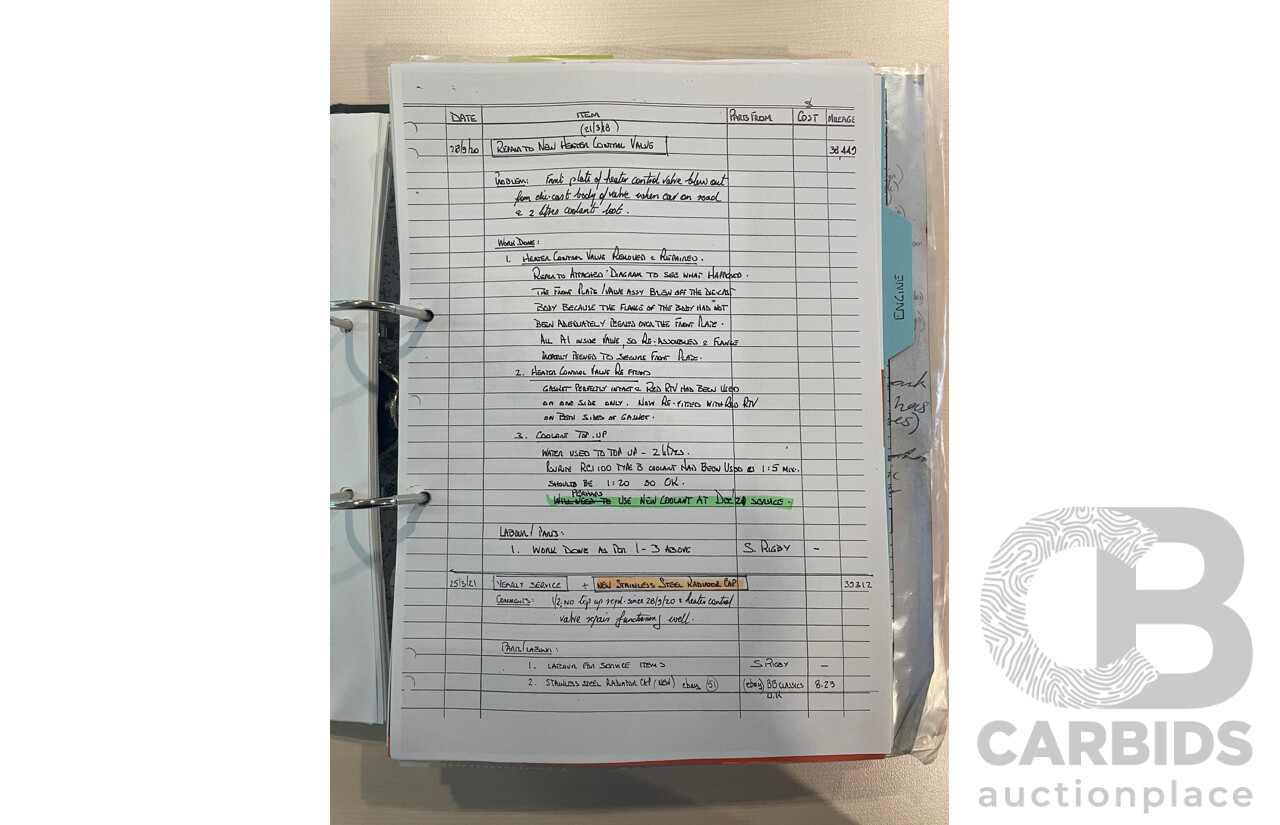 $
DATE ITEM PARTS FROM COST MILEAGE
(21/3/18)
28/9/20 REPAIR TO NEW HEATER CONTROL VALVE 38,449
PROBLEM: Front plate of heater control valve blew out
from die-cast body of valve when car on road
& 2 litres coolant lost.
WORK DONE:
1. HEATER CONTROL VALVE REMOVED & REPAIRED.
REFER TO ATTACHED DIAGRAM TO SEE WHAT HAPPENED.
THE FRONT PLATE / VALVE ASSY BLEW OFF THE DIECAST
BODY BECAUSE THE FLANGE OF THE BODY HAD NOT
BEEN ADEQUATELY PEENED OVER THE FRONT PLATE.
ALL A1 INSIDE VALVE, SO RE-ASSEMBLED & FLANGE
PEENED TO SECURE FRONT PLATE.
2. HEATER CONTROL VALVE RE FITTED
GASKET PERFECTLY INTACT & RED RTV HAD BEEN USED
ON ONE SIDE ONLY. NOW RE-FITTED WITH RED RTV
ON BOTH SIDES OF GASKET.
3. COOLANT TOP-UP
WATER USED TO TOP UP - 2 litres.
RCI 100 TYPE B COOLANT HAD BEEN USED @ 1:5 MIX.
SHOULD BE 1:20 SO OK.
PERHAPS
WILL NEED TO USE NEW COOLANT AT DEC 21 SERVICE.
LABOUR / PARTS:
1. WORK DONE AS PER 1-3 ABOVE S. RIGBY -
25/3/21 YEARLY SERVICE + NEW STAINLESS STEEL RADIATOR CAP 39312
COMMENTS: 1/2; NO top up reqd. since 28/9/20 & heater control
valve repair functioning well.
PARTS/LABOUR:
1. LABOUR FOR SERVICE ITEMS S. RIGBY -
2. STAINLESS STEEL RADIATOR CAP (NEW) ebay (51) (ebay) BB CLASSICS 8.29
U.K
ENGINE
has
CARBIDS
auctionplace